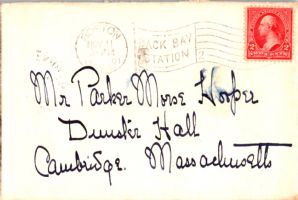 BOSTON
BACK BAY
STATION
2
2
Mr Parker Morse Hooper
Dunster Hall
Cambridge. Massachusetts